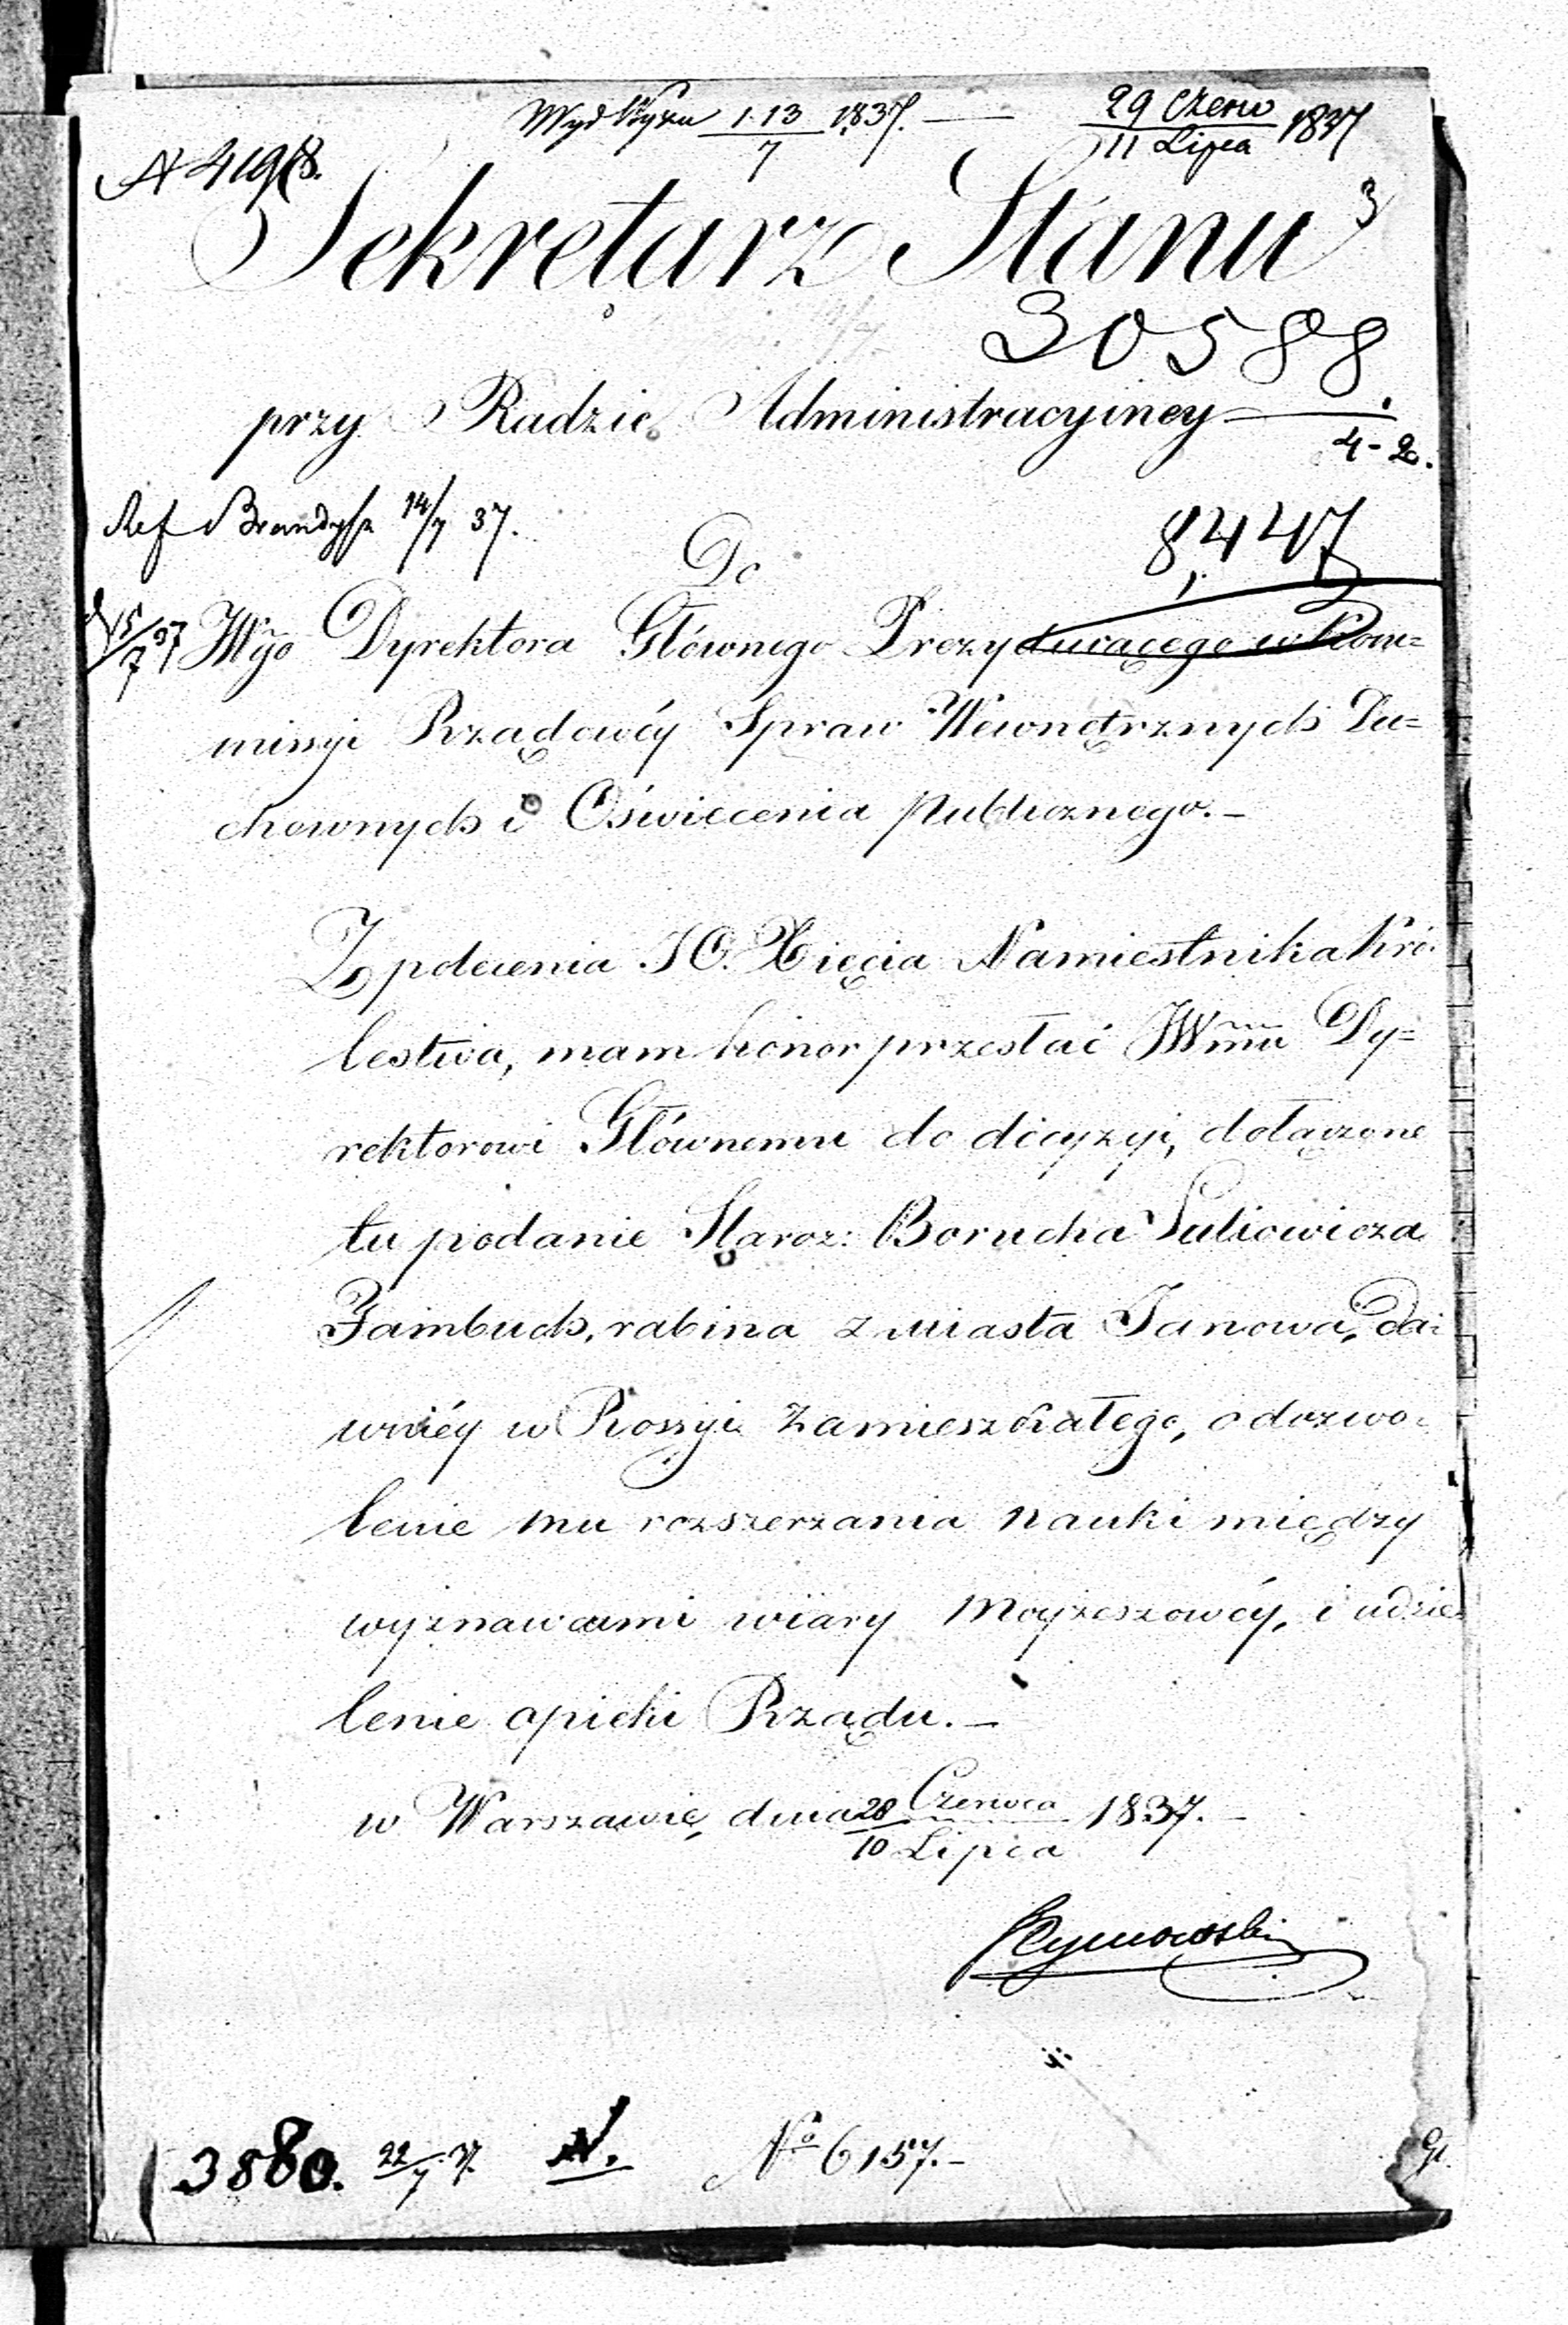 1·13/7 1837. — 29 Czerw/11 Lipca 1837
N 41918.
3
Sekretarz Stanu
30588.
przy Radzie Administracyiney
4-2.
Ref 14/7 37.
8,447
Do
15/7 37 JWgo Dyrektora Głównego Prezyduiącego w Kom=
missyi Rządowéy Spraw Wewnętrznych Du=
chownych i Oświecenia Publicznego.—
Z polecenia JO. Xięcia Namiestnika Kró-
lestwa, mam honor przesłać JWmu Dy=
rektorowi Głównemu do decyzyi, dołączone
tu podanie Staroz: Borucha
rabina z miasta Janowa, da=
wniéy w Rossyi zamieszkałego, o dozwo-
lenie mu rozszerzania nauki między
wyznawcami wiary Moyżeszowéy, i udzie-
lenie opieki Rządu.—
w Warszawie, dnia 28 Czerwca/10 Lipca 1837.—
3880. 22/7 37. N. № 6157.—